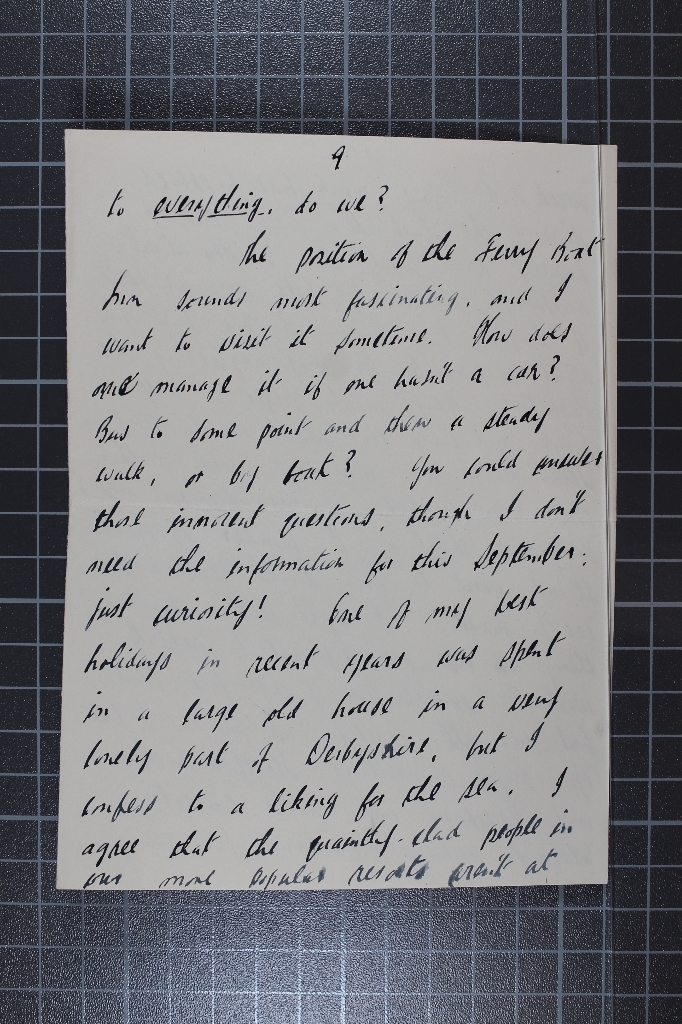 9
to everything, do we?
The position of the Ferry Boat
Inn sounds most fascinating, and I
want to visit it sometime. How does
one manage it if one hasn't a car?
Bus to some point and then a steady
walk, or by boat? You could answer
those innocent questions, though I don't
need the information for this September;
just curiosity! One of my best
holidays in recent years was spent
in a large old house in a very
lonely part of Derbyshire, but I
confess to a liking for the sea. I
agree that the quaintly-clad people in
our more popular resorts aren't at